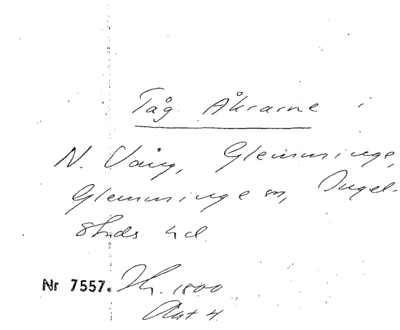 Tåg Åkrarne i
N. Vång, Glemminge,
Glemminge sn, Ingel-
stads hd.
Nr 7557. Sk. 1800
Akt 4